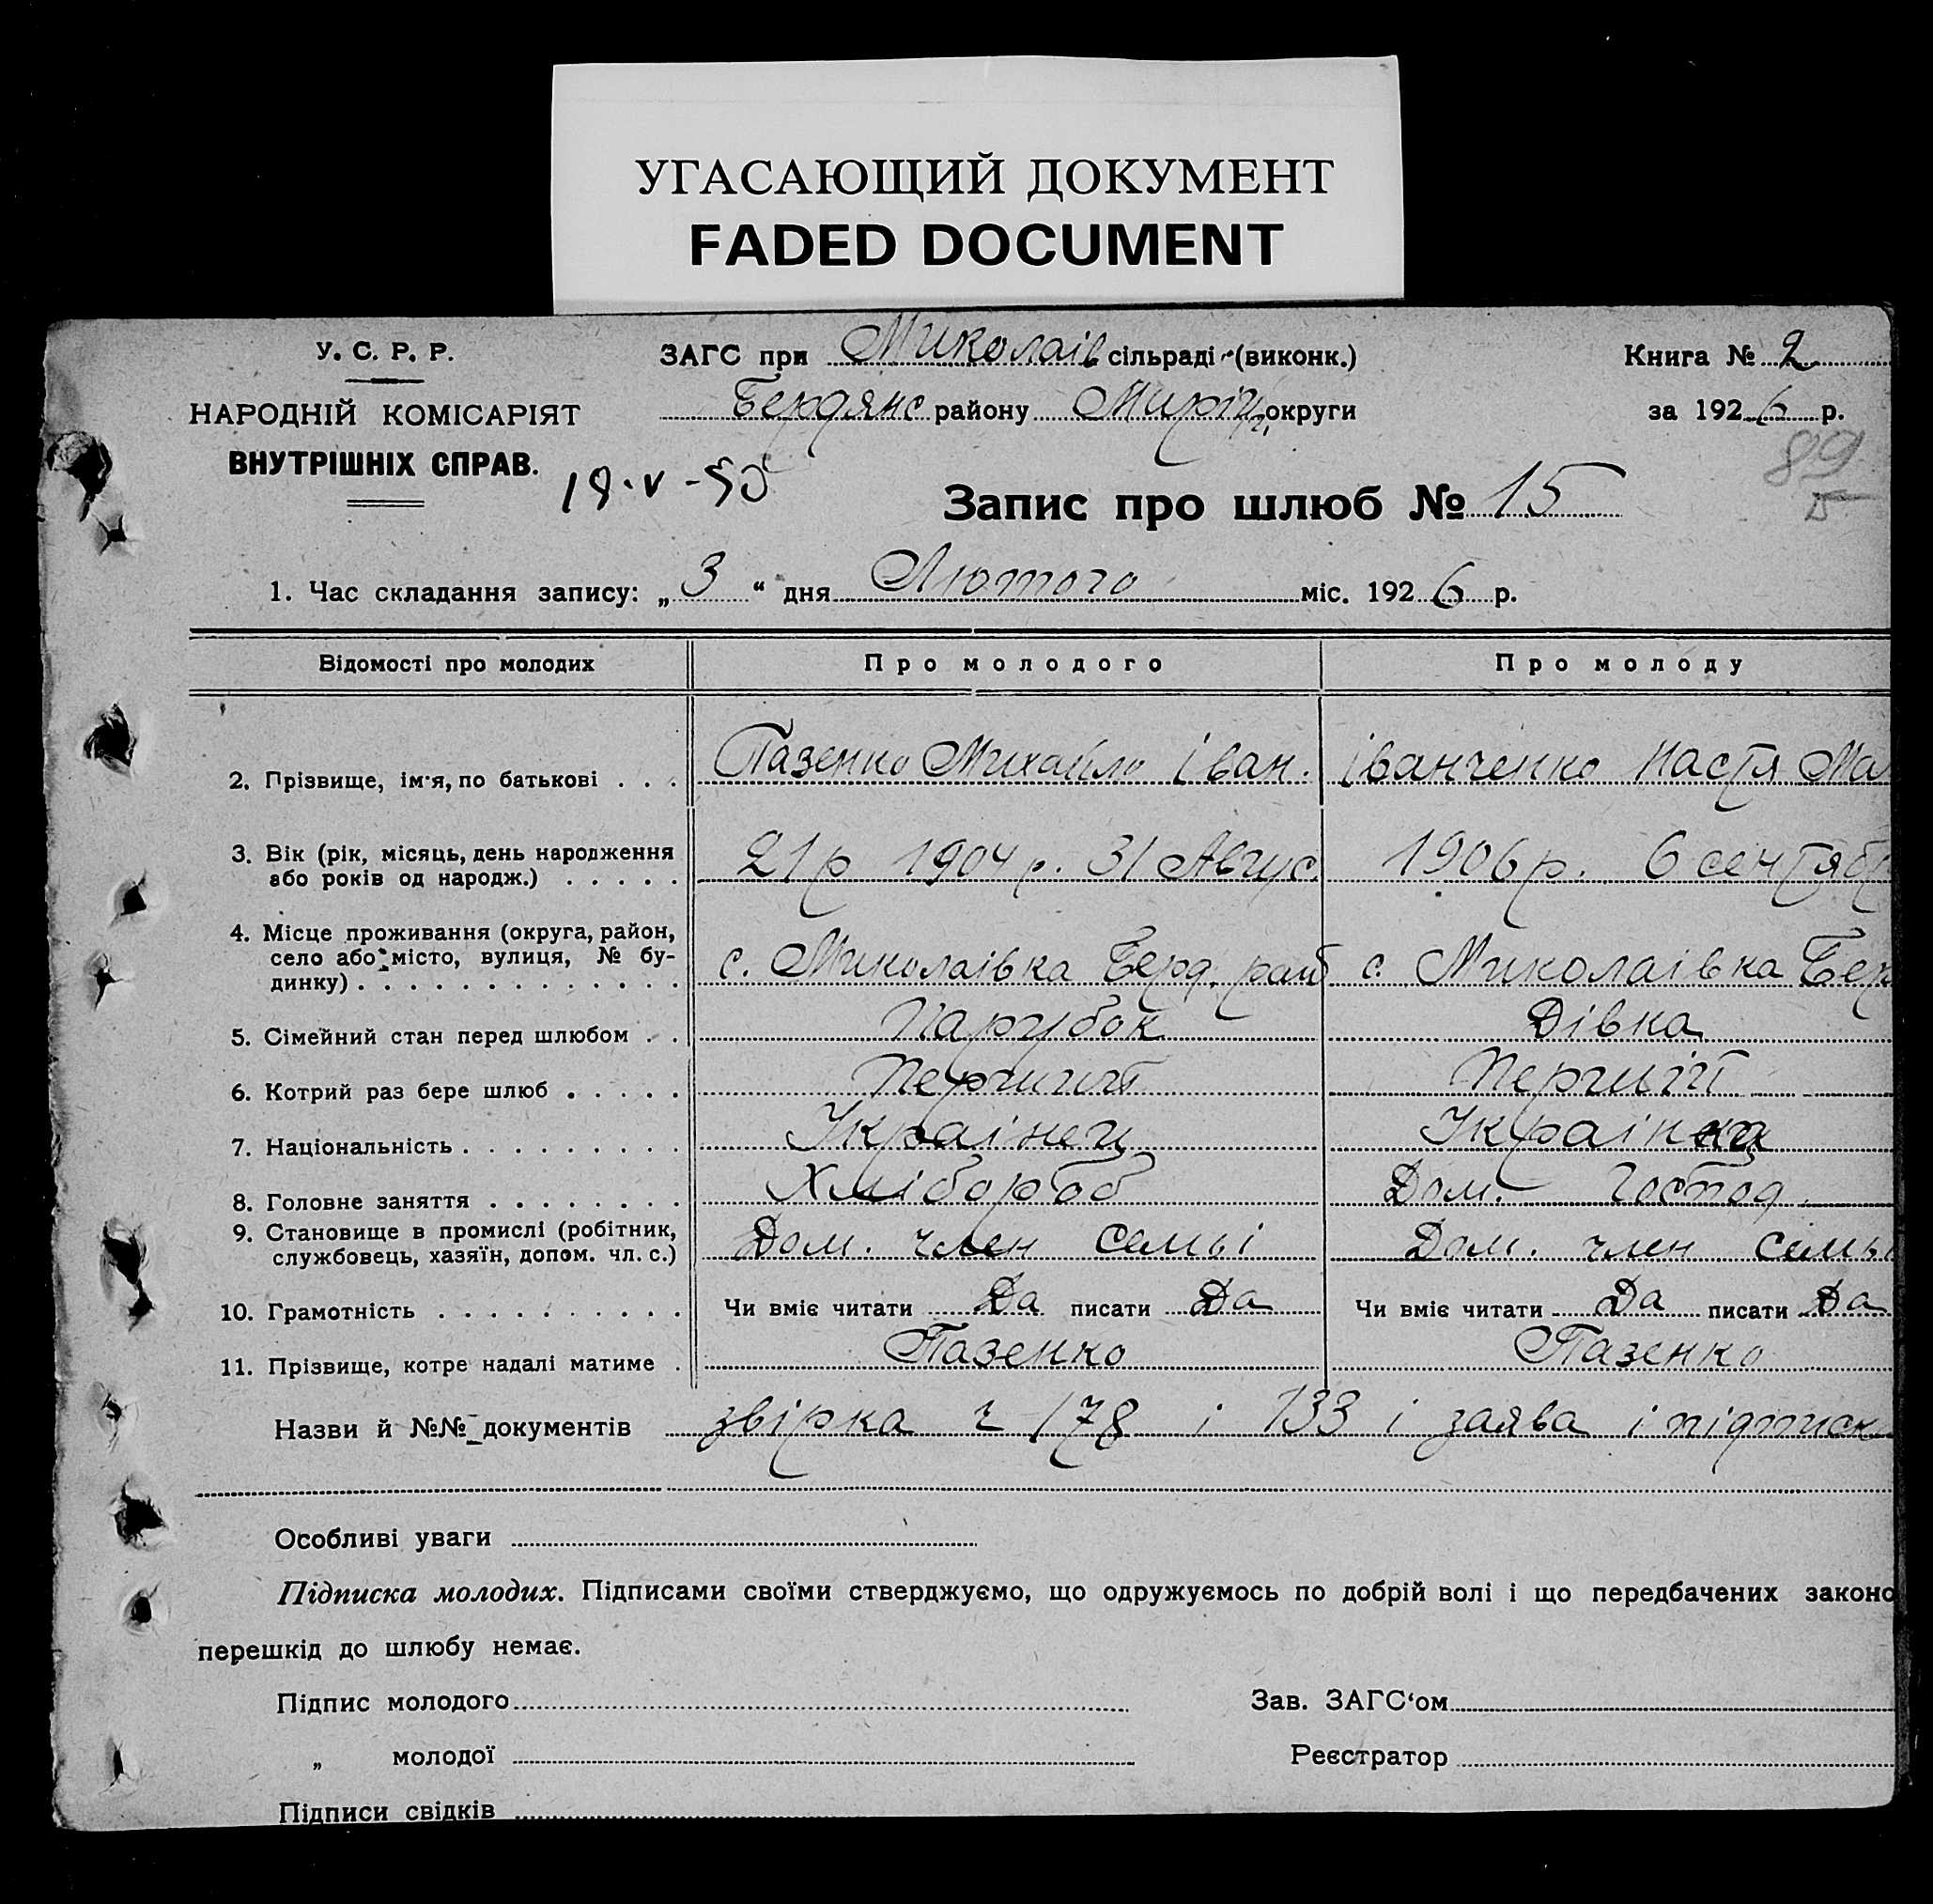 УГАСАЮЩИЙ ДОКУМЕНТ
FADED DOCUMENT
У. С. Р. Р.
НАРОДНІЙ КОМІСАРІЯТ
ВНУТРІШНІХ СПРАВ.
ЗАГС при Миколаів сільраді (виконк.)
Бердянс району округи
Книга № 2
за 1926 р.
89
Запис про шлюб № 15
1. Час складання запису: „3“ дня Лютого міс. 1926 р.
Відомості про молодих Про молодого Про молоду
2. Прізвище, ім'я, по батькові . . . Пазенко Михайло Іван. Іванченко Настя Ма
3. Вік (рік, місяць, день народження
або років од народж.) . . . . . 21 р 1904 р. 31 Авгус. 1906 р. 6 сентябр
4. Місце проживання (округа, район,
село або місто, вулиця, № бу-
динку) . . . . . . . . . . . . . с. Миколаівка Берд. рай с. Миколаівка Бер
5. Сімейний стан перед шлюбом . . Парубок Дівка
6. Котрий раз бере шлюб . . . . . Перший Перший
7. Національність . . . . . . . . . Украінец Украінка
8. Головне заняття . . . . . . . . Хлібороб Дом. Господ.
9. Становище в промислі (робітник,
службовець, хазяїн, допом. чл. с.) Дом. член семьі Дом. член семьі
10. Грамотність . . . . . . . . . . Чи вміє читати Да писати Да Чи вміє читати Да писати Да
11. Прізвище, котре надалі матиме . Пазенко Пазенко
Назви й №№ документів звірка ч 178 і 133 і заява і підписк
Особливі уваги
Підписка молодих. Підписами своїми стверджуємо, що одружуємось по добрій волі і що передбачених законо
перешкід до шлюбу немає.
Підпис молодого
Зав. ЗАГС‘ом
„ молодої
Реєстратор
Підписи свідків